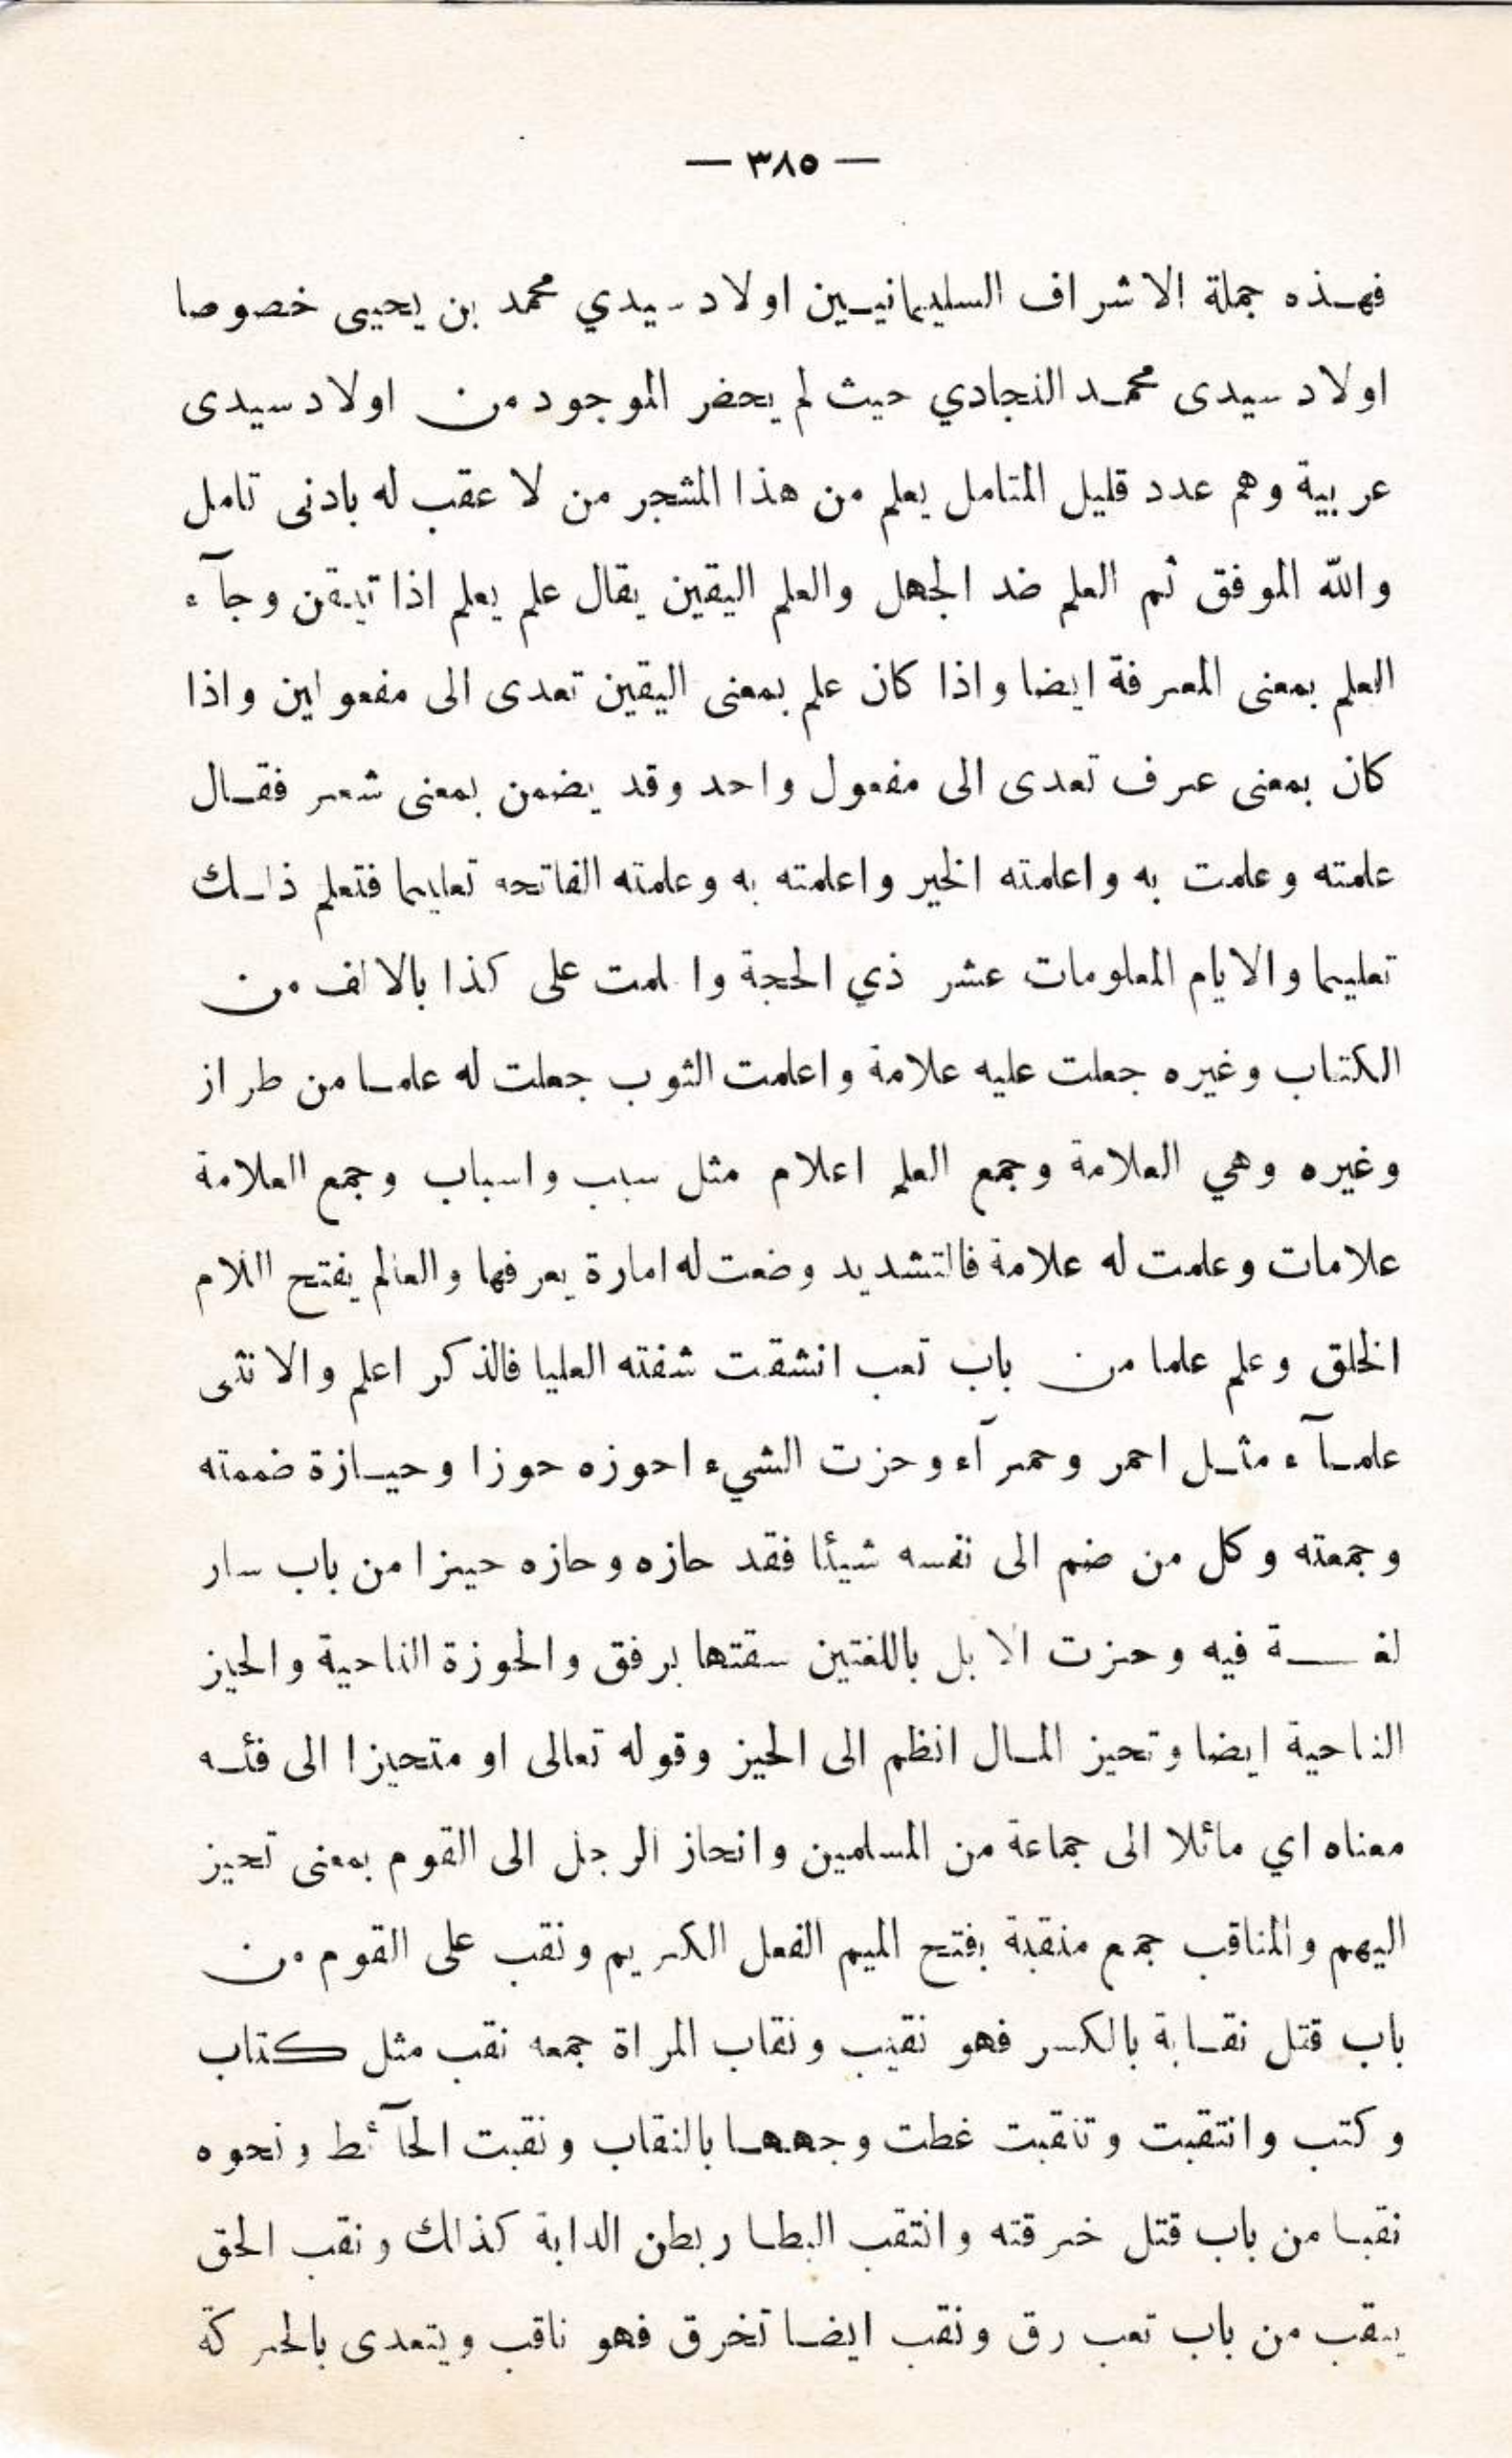 — ٣٨٥ —
فهذه جملة الاشراف السليمانيين اولاد سيدي محمد بن يحيى خصوصا
اولاد سيدى محمد النجادي حيث لم يحضر الموجود من اولاد سيدى
عربية وهم عدد قليل المتامل يعلم من هذا المشجر من لا عقب له بادنى تامل
والله الموفق ثم العلم ضد الجهل والعلم اليقين يقال علم يعلم اذا تيقن وجآء
العلم بمعنى المعرفة ايضا واذا كان علم بمعنى اليقين تعدى الى مفعولين واذا
كان بمعنى عرف تعدى الى مفعول واحد وقد يضمن بمعنى شعر فقال
علمته وعلمت به واعلمته الخير واعلمته به وعلمته الفاتحه تعليما فتعلم ذلك
تعليما والايام المعلومات عشر ذي الحجة واعلمت على كذا بالالف من
الكتاب وغيره جعلت عليه علامة واعلمت الثوب جعلت له علما من طراز
وغيره وهي العلامة وجمع العلم اعلام مثل سبب واسباب وجمع العلامة
علامات وعلمت له علامة فالتشديد وضعت له امارة يعرفها والعالم يفتح اللام
الخلق وعلم علما من باب تعب انشقت شفته العليا فالذكر اعلم والانثى
علمآء مثل احمر وحمرآء وحزت الشيء احوزه حوزا وحيازة ضممته
وجمعته وكل من ضم الى نفسه شيئا فقد حازه وحازه حيزا من باب سار
لغة فيه وحزت الابل باللغتين سقتها برفق والحوزة الناحية والحيز
الناحية ايضا وتحيز المال انظم الى الحيز وقوله تعالى او متحيزا الى فئه
معناه اي مائلا الى جماعة من المسلمين وانحاز الرجل الى القوم بمعنى تحيز
اليهم والمناقب جمع منقبة بفتح الميم الفعل الكريم ونقب على القوم من
باب قتل نقابة بالكسر فهو نقيب ونقاب المراة جمعه نقب مثل كتاب
وكتب وانتقبت وتنقبت غطت وجهها بالنقاب ونقبت الحآئط ونحوه
نقبا من باب قتل خرقته وانتقب البطار بطن الدابة كذالك ونقب الحق
ينقب من باب تعب رق ونقب ايضا تخرق فهو ناقب ويتعدى بالحركة